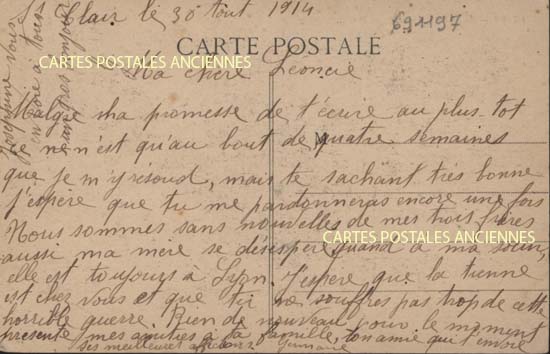 St Clair le 30 Aout 1914
694197
CARTE POSTALE
CARTES POSTALES ANCIENNES
Ma chère Léoncie
Malgré ma promesse de t'écrire au plus tot
ce n'est qu'au bout de quatre semaines
que je m'y résoud, mais te sachant très bonne
j'espère que tu me pardonneras encore une fois
Nous sommes sans nouvelles de mes trois frères
CARTES POSTALES ANCIENNES
aussi ma mère se désespère Quand à ma sœur,
elle est toujours à Lyon. J'espère que la tienne
est chez vous et que tu ne souffres pas trop de cette
horrible guerre. Rien de nouveau pour le moment
présente mes amitiés à ta famille, ton amie qui t'envoie
ses meilleures affections
Joséphine vous
encore à tous
bonjour